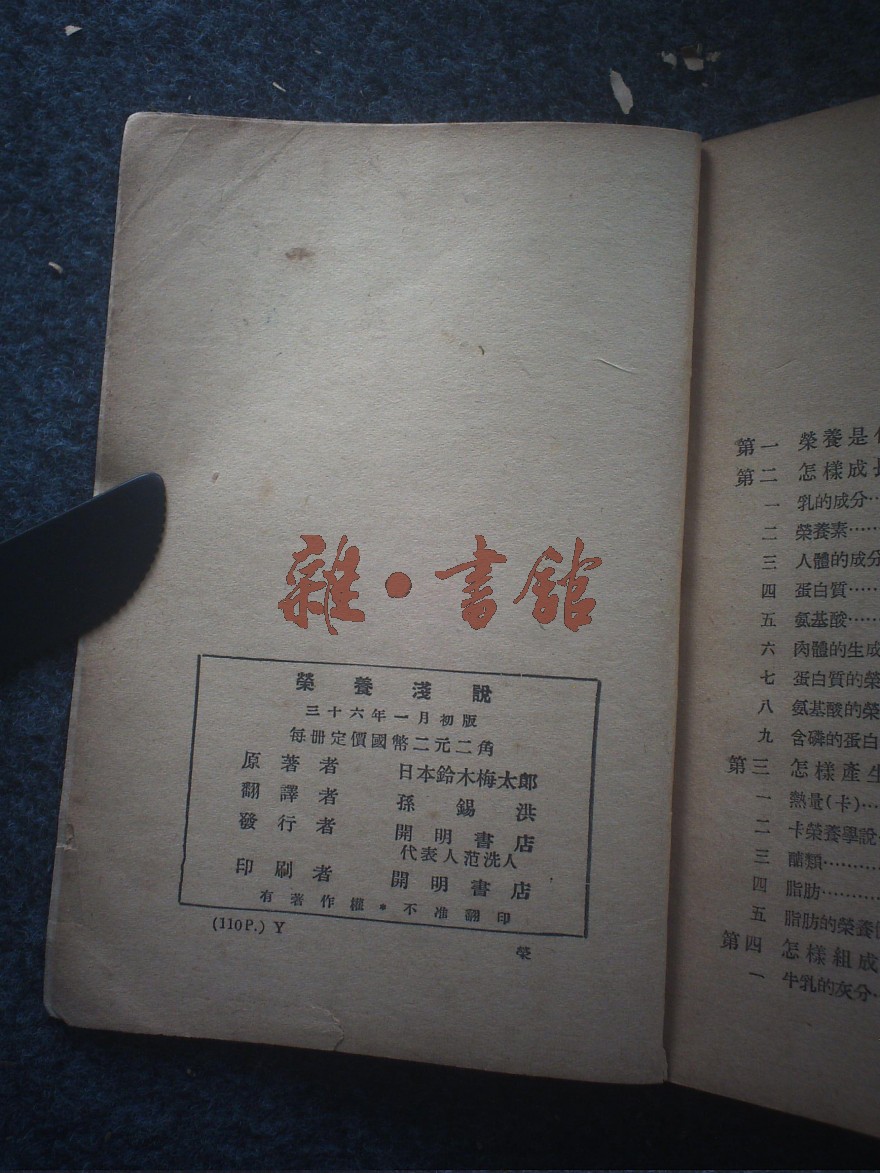 雜·書館
榮養淺說
三十六年一月初版
每册定價國幣二元二角
原著者 日本鈴木梅太郎
翻譯者 孫錫洪
發行者 開明書店
代表人范洗人
印刷者 開明書店
有著作權*不准翻印
(110P.) Y
榮
第一 榮養是
第二 怎樣成長
一 乳的成分…
二 榮養素……
三 人體的成分
四 蛋白質……
五 氨基酸……
六 肉體的生成
七 蛋白質的榮
八 氨基酸的榮
九 含磷的蛋白
第三 怎樣產生
一 熱量(卡)…
二 卡榮養學說…
三 醣類………
四 脂肪………
五 脂肪的榮養
第四 怎樣組成
一 牛乳的灰分…